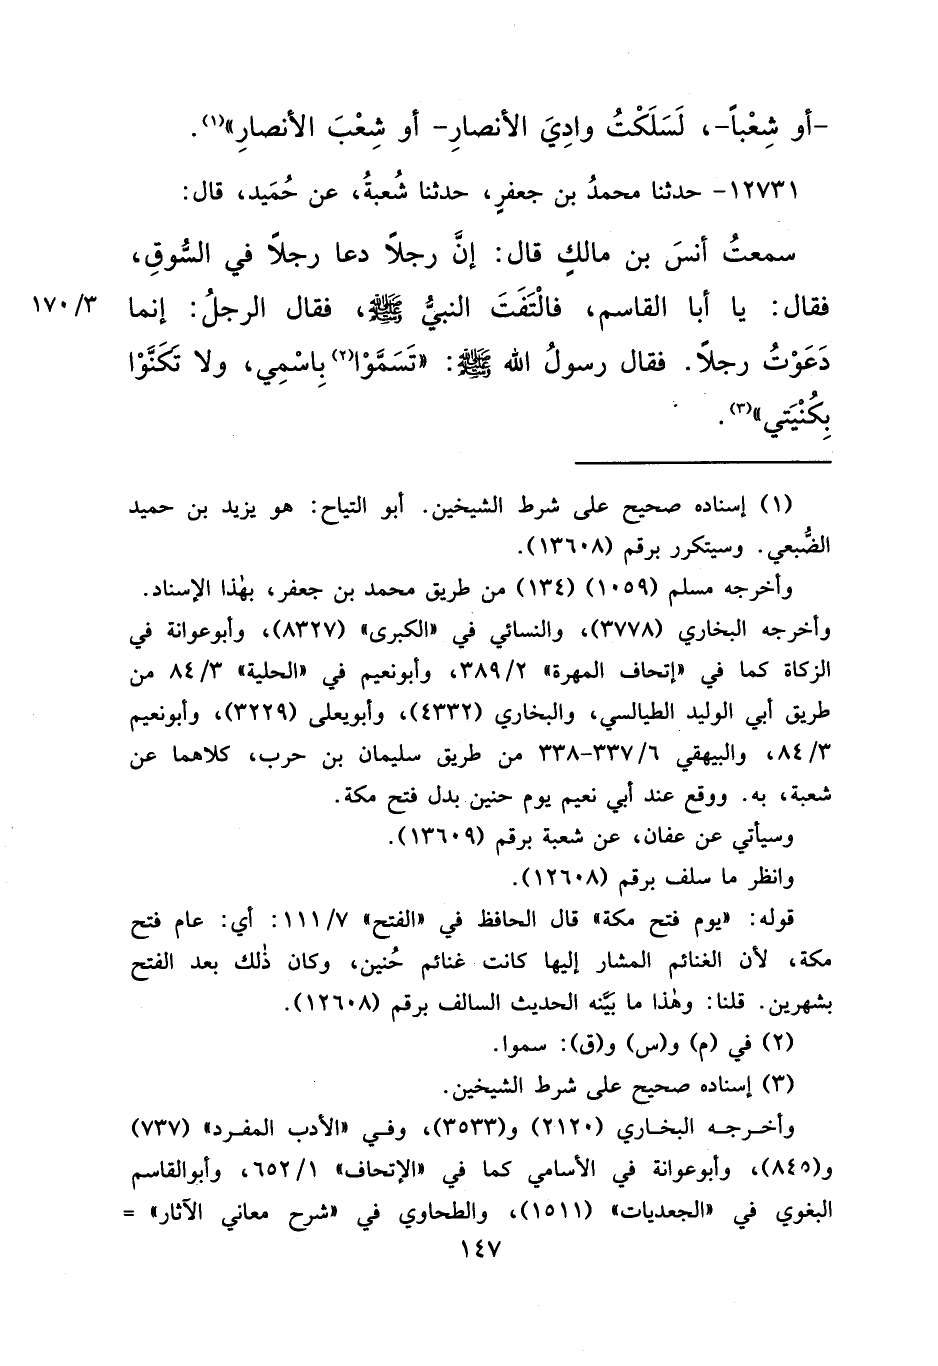 -أو شِعْباً-، لَسَلَكْتُ وادِيَ الأنصارِ- أو شِعْبَ الأنصارِ»(١).
١٢٧٣١- حدثنا محمدُ بن جعفرٍ، حدثنا شُعبةُ، عن حُمَيد، قال:
سمعتُ أنسَ بن مالكٍ قال: إنَّ رجلاً دعا رجلاً في السُّوقِ،
فقال: يا أبا القاسم، فالْتَفَتَ النبيُّ ﷺ، فقال الرجلُ: إنما ١٧٠/٣
دَعَوْتُ رجلاً. فقال رسولُ الله ﷺ: «تَسَمَّوْا(٢) بِاسْمِي، ولا تَكَنَّوْا
بِكُنْيَتي»(٣).
(١) إسناده صحيح على شرط الشيخين. أبو التياح: هو يزيد بن حميد
الضُّبعي. وسيتكرر برقم (١٣٦٠٨).
وأخرجه مسلم (١٠٥٩) (١٣٤) من طريق محمد بن جعفر، بهٰذا الإسناد.
وأخرجه البخاري (٣٧٧٨)، والنسائي في «الكبرى» (٨٣٢٧)، وأبوعوانة في
الزكاة كما في «إتحاف المهرة» ٣٨٩/٢، وأبونعيم في «الحلية» ٨٤/٣ من
طريق أبي الوليد الطيالسي، والبخاري (٤٣٣٢)، وأبويعلى (٣٢٢٩)، وأبونعيم
٨٤/٣، والبيهقي ٣٣٧/٦-٣٣٨ من طريق سليمان بن حرب، كلاهما عن
شعبة، به. ووقع عند أبي نعيم يوم حنين بدل فتح مكة.
وسيأتي عن عفان، عن شعبة برقم (١٣٦٠٩).
وانظر ما سلف برقم (١٢٦٠٨).
قوله: «يوم فتح مكة» قال الحافظ في «الفتح» ١١١/٧: أي: عام فتح
مكة، لأن الغنائم المشار إليها كانت غنائم حُنين، وكان ذٰلك بعد الفتح
بشهرين. قلنا: وهٰذا ما بَيَّنه الحديث السالف برقم (١٢٦٠٨).
(٢) في (م) و(س) و(ق): سموا.
(٣) إسناده صحيح على شرط الشيخين.
وأخرجه البخاري (٢١٢٠) و(٣٥٣٣)، وفي «الأدب المفرد» (٧٣٧)
و(٨٤٥)، وأبوعوانة في الأسامي كما في «الإتحاف» ٦٥٢/١، وأبوالقاسم
البغوي في «الجعديات» (١٥١١)، والطحاوي في «شرح معاني الآثار» =
١٤٧